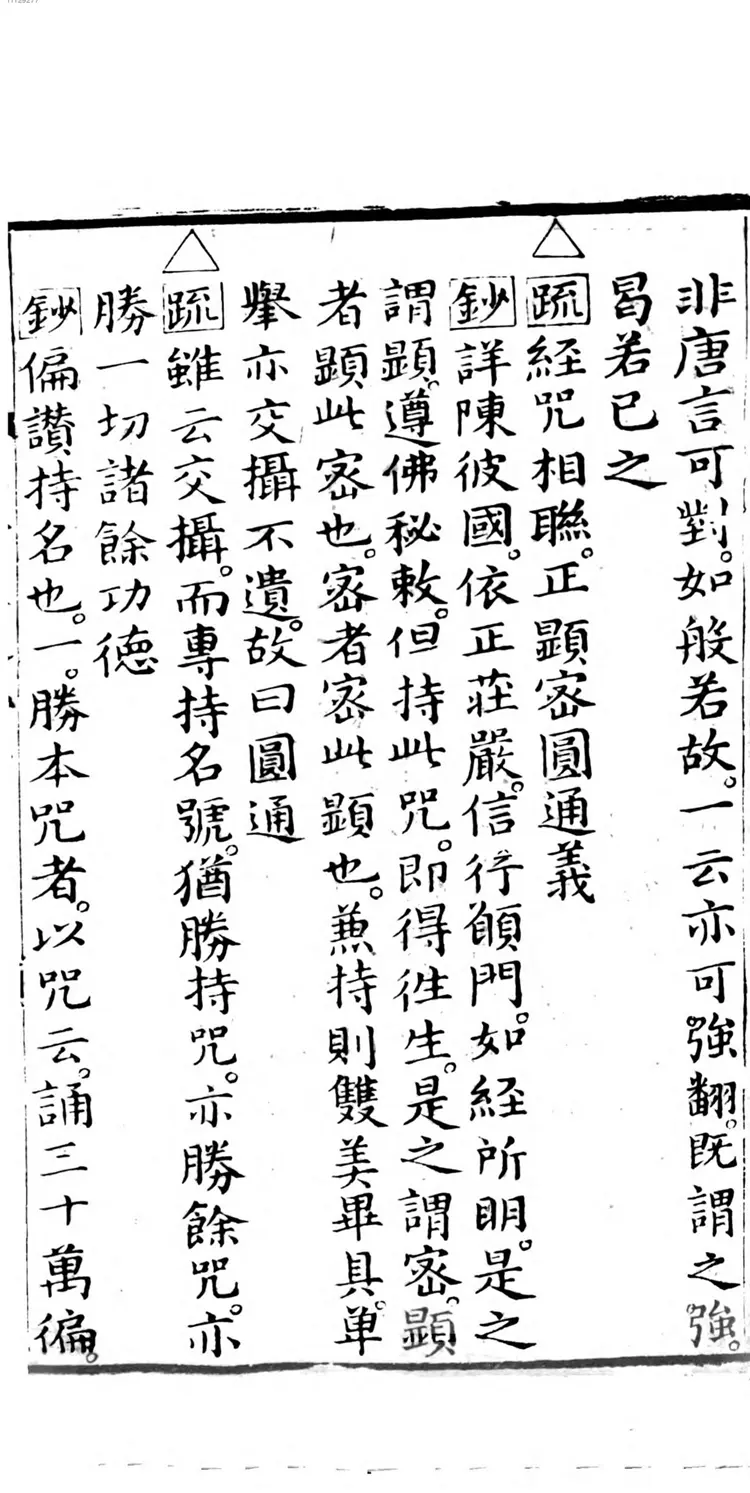 非唐言可對。如般若故。一云亦可強翻。既謂之強。
曷若已之
疏經咒相聯。正顯密圓通義
鈔詳陳彼國。依正莊嚴。信行願門。如經所明。是之
謂顯。遵佛秘敕。但持此咒。即得徃生。是之謂密。顯
者顯此密也。密者密此顯也。兼持則雙美畢具。单
舉亦交攝不遺。故曰圓通
疏雖云交攝。而專持名號。猶勝持咒。亦勝餘咒。亦
勝一切諸餘功德
鈔偏讃持名也。一。勝本咒者。以咒云。誦三十萬徧。